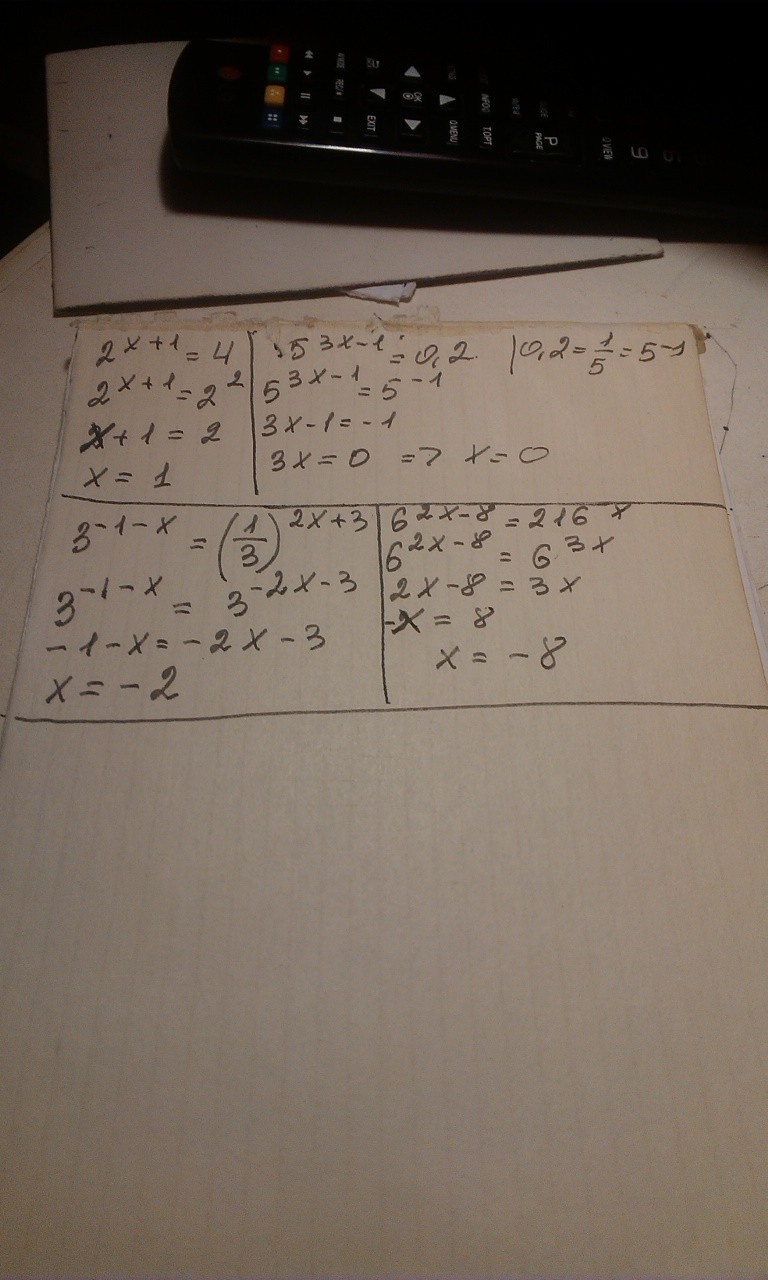 EXIT
OK
Q.MENU
INFO
TOPT
P
PAGE
Q.VIEW
9
2^{x+1} = 4
2^{x+1} = 2^2
x + 1 = 2
x = 1
5^{3x-1} = 0,2
0,2 = \frac{1}{5} = 5^{-1}
5^{3x-1} = 5^{-1}
3x - 1 = -1
3x = 0 => x = 0
3^{-1-x} = (\frac{1}{3})^{2x+3}
3^{-1-x} = 3^{-2x-3}
-1 - x = -2x - 3
x = -2
6^{2x-8} = 216^x
6^{2x-8} = 6^{3x}
2x - 8 = 3x
-x = 8
x = -8